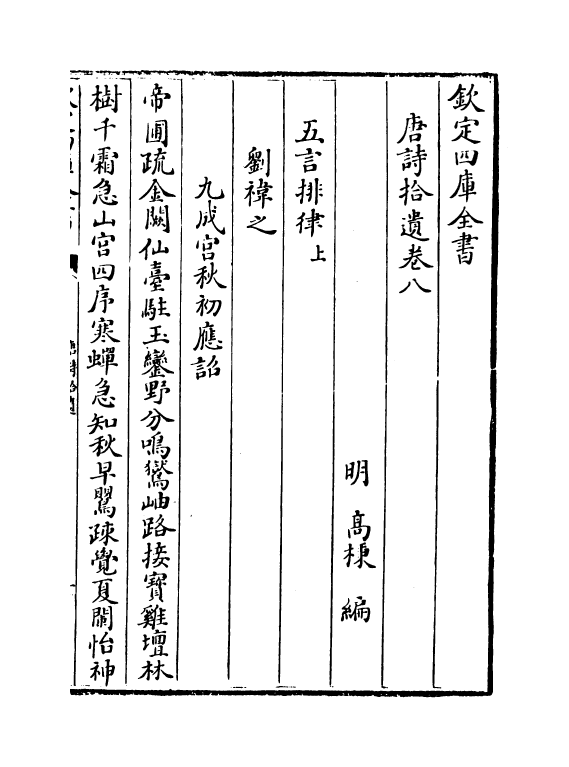 欽定四庫全書
唐詩拾遺卷八
明 髙棅 編
五言排律上
劉禕之
九成宫秋初應詔
帝圃疏金闕仙臺駐玉鑾野分鳴鸑岫路接寳雞壇林
樹千霜急山宫四序寒蟬急知秋早鸎疎覺夏闌怡神
唐詩拾遺